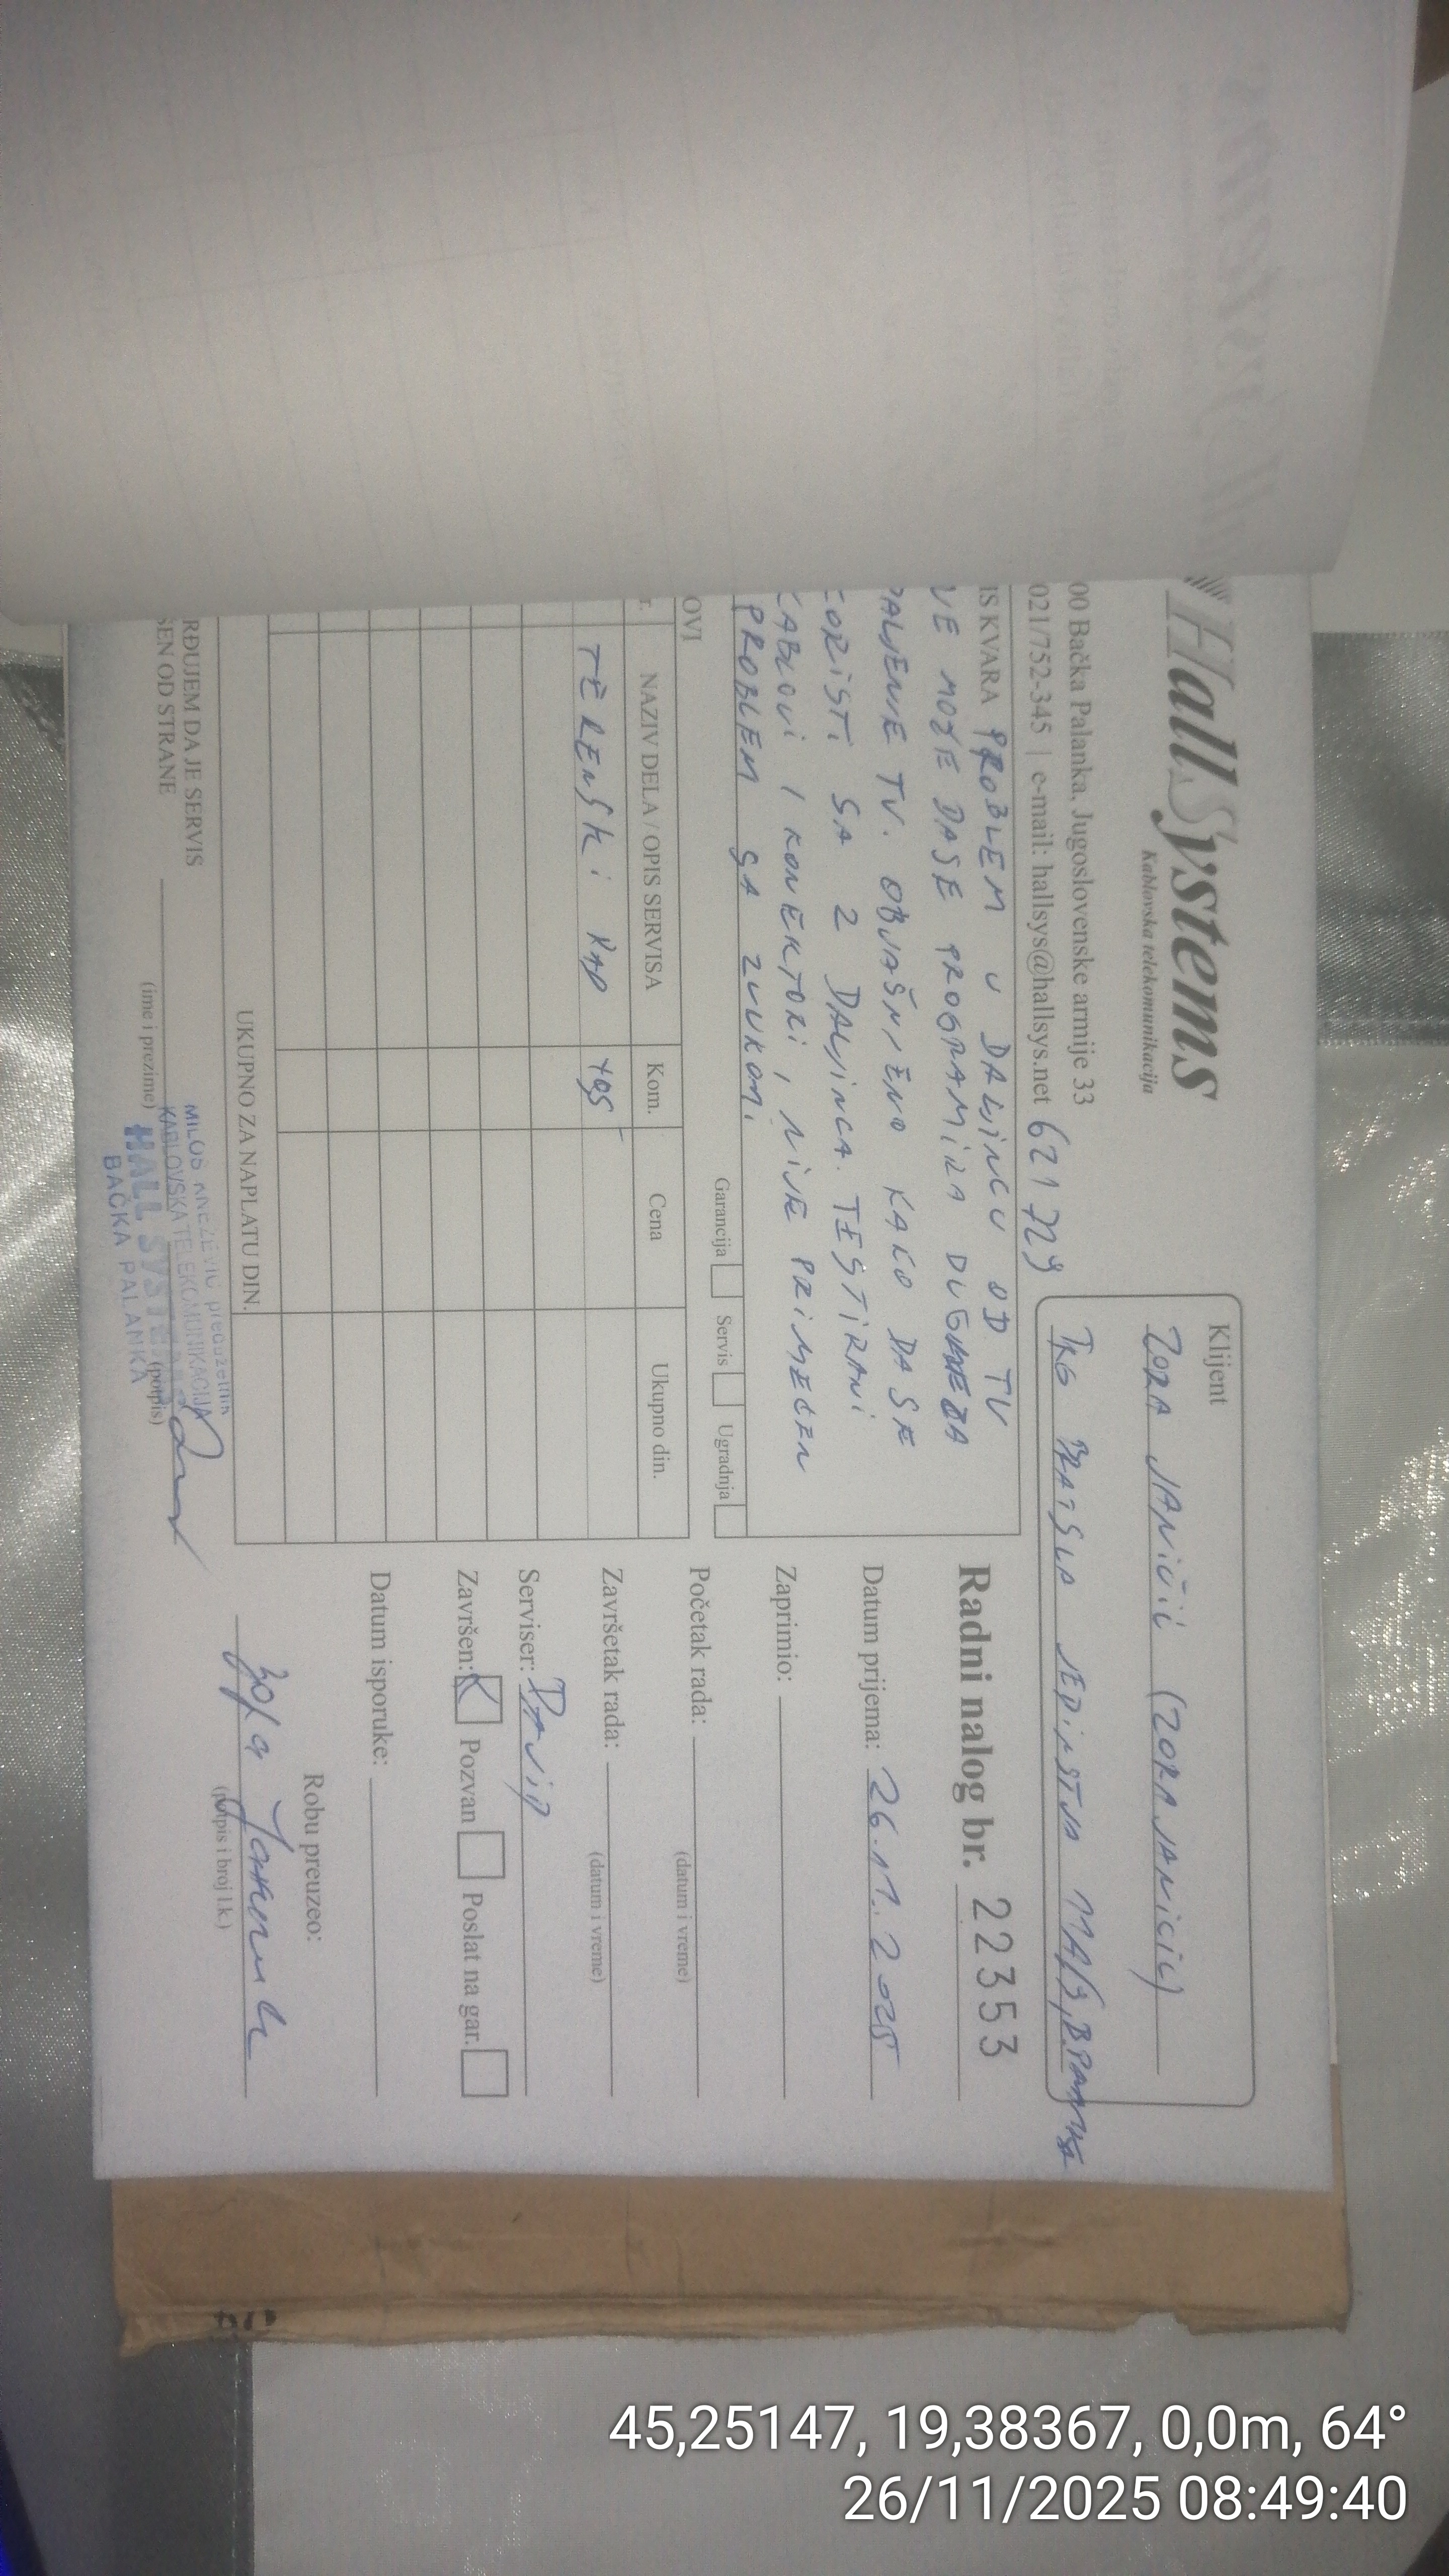 HallSystems
Kablovska telekomunikacija
00 Bačka Palanka, Jugoslovenske armije 33
021/752-345 | e-mail: hallsys@hallsys.net
621 729
Klijent
ZORA JANIČIĆ (ZORAJANICIC)
TRG BRATSVA JEDINSTVA 11A/9, B.PALANKA
IS KVARA PROBLEM U DALJINCU OD TV
VE MOŽE DA SE PROGRAMIRA DUGME ZA
PALJENJE TV. OBJAŠNJENO KAKO DA SE
KORISTI SA 2 DALJINCA. TESTIRANI
KABLOVI I KONEKTORI, NIJE PRIMEĆEN
PROBLEM SA ZVUKOM.
Garancija Servis Ugradnja
OVI
r. NAZIV DELA / OPIS SERVISA Kom. Cena Ukupno din.
TERENSKI RAD
UKUPNO ZA NAPLATU DIN.
RĐUJEM DA JE SERVIS
ŠEN OD STRANE
(ime i prezime) (potpis)
MILOŠ KNEŽEVIĆ preduzetnik
KABLOVSKA TELEKOMUNIKACIJA
HALL SYSTEMS
BAČKA PALANKA
Radni nalog br. 22353
Datum prijema: 26.11.2025
Zaprimio:
Početak rada:
(datum i vreme)
Završetak rada:
(datum i vreme)
Serviser: DAVID
Završen: Pozvan Poslat na gar.
Datum isporuke:
Robu preuzeo:
(potpis i broj l.k.)
45,25147, 19,38367, 0,0m, 64°
26/11/2025 08:49:40